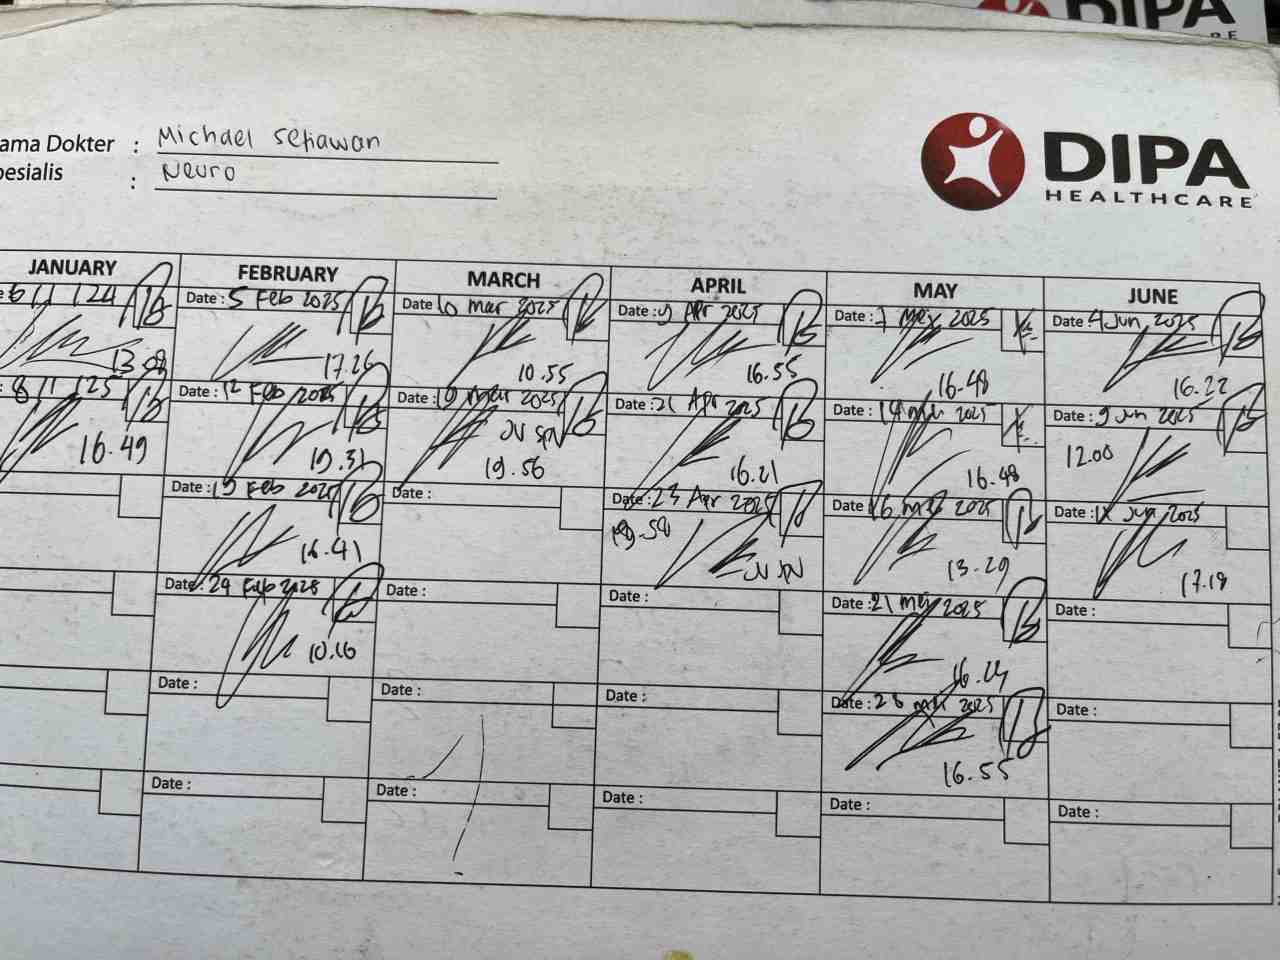 DIPA
ama Dokter : Michael Setiawan
pesialis : Neuro
DIPA
HEALTHCARE
JANUARY FEBRUARY MARCH APRIL MAY JUNE
6/1/24 Date : 5 Feb 2025 Date 10 Mar 2025 Date : 9 Apr 2025 Date : 7 Mei 2025 Date : 4 Jun 2025
13.08 17.26 10.55 16.55 16.48 16.22
8/1/25 Date : 12 Feb 2025 Date : 19 Mar 2025 Date : 21 Apr 2025 Date : 14 Mei 2025 Date : 9 Jun 2025
16.49 19.31 JV SPV 19.56 16.21 16.48 12.00
Date : 19 Feb 2025 Date : Date : 23 Apr 2025 Date 16 Mei 2025 Date : Jun 2025
16.41 19.58 JV SPV 13.29 17.18
Date : 24 Feb 2025 Date : Date : Date : 21 Mei 2025 Date :
10.16 16.24
Date : Date : Date : Date : 28 Mei 2025 Date :
16.55
Date : Date : Date : Date : Date :